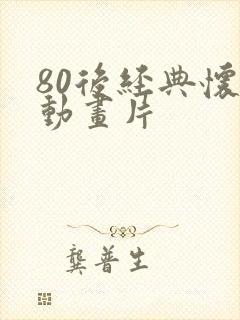 80後經典懷
動畫片
龔普生